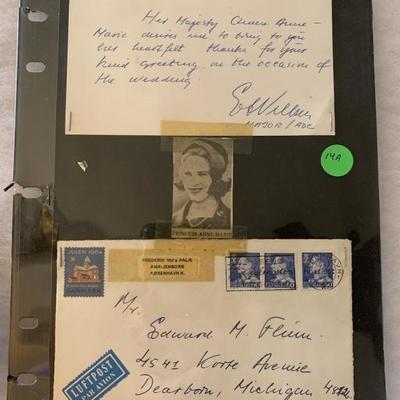 Her Majesty Queen Anne-
Marie desires me to bring to you
her heartfelt thanks for your
kind greeting on the occasion of
the wedding
MAJOR/ADC
14A
PRINCESS ANNE-MARIE
JULEN 1964
DANMARK
FREDERIK VIII's PALÆ
AMALIENBORG
KØBENHAVN K.
Mr.
Edward M. Flinn.
4541 Korte Avenue
Dearborn, Michigan
LUFTPOST
PAR AVION